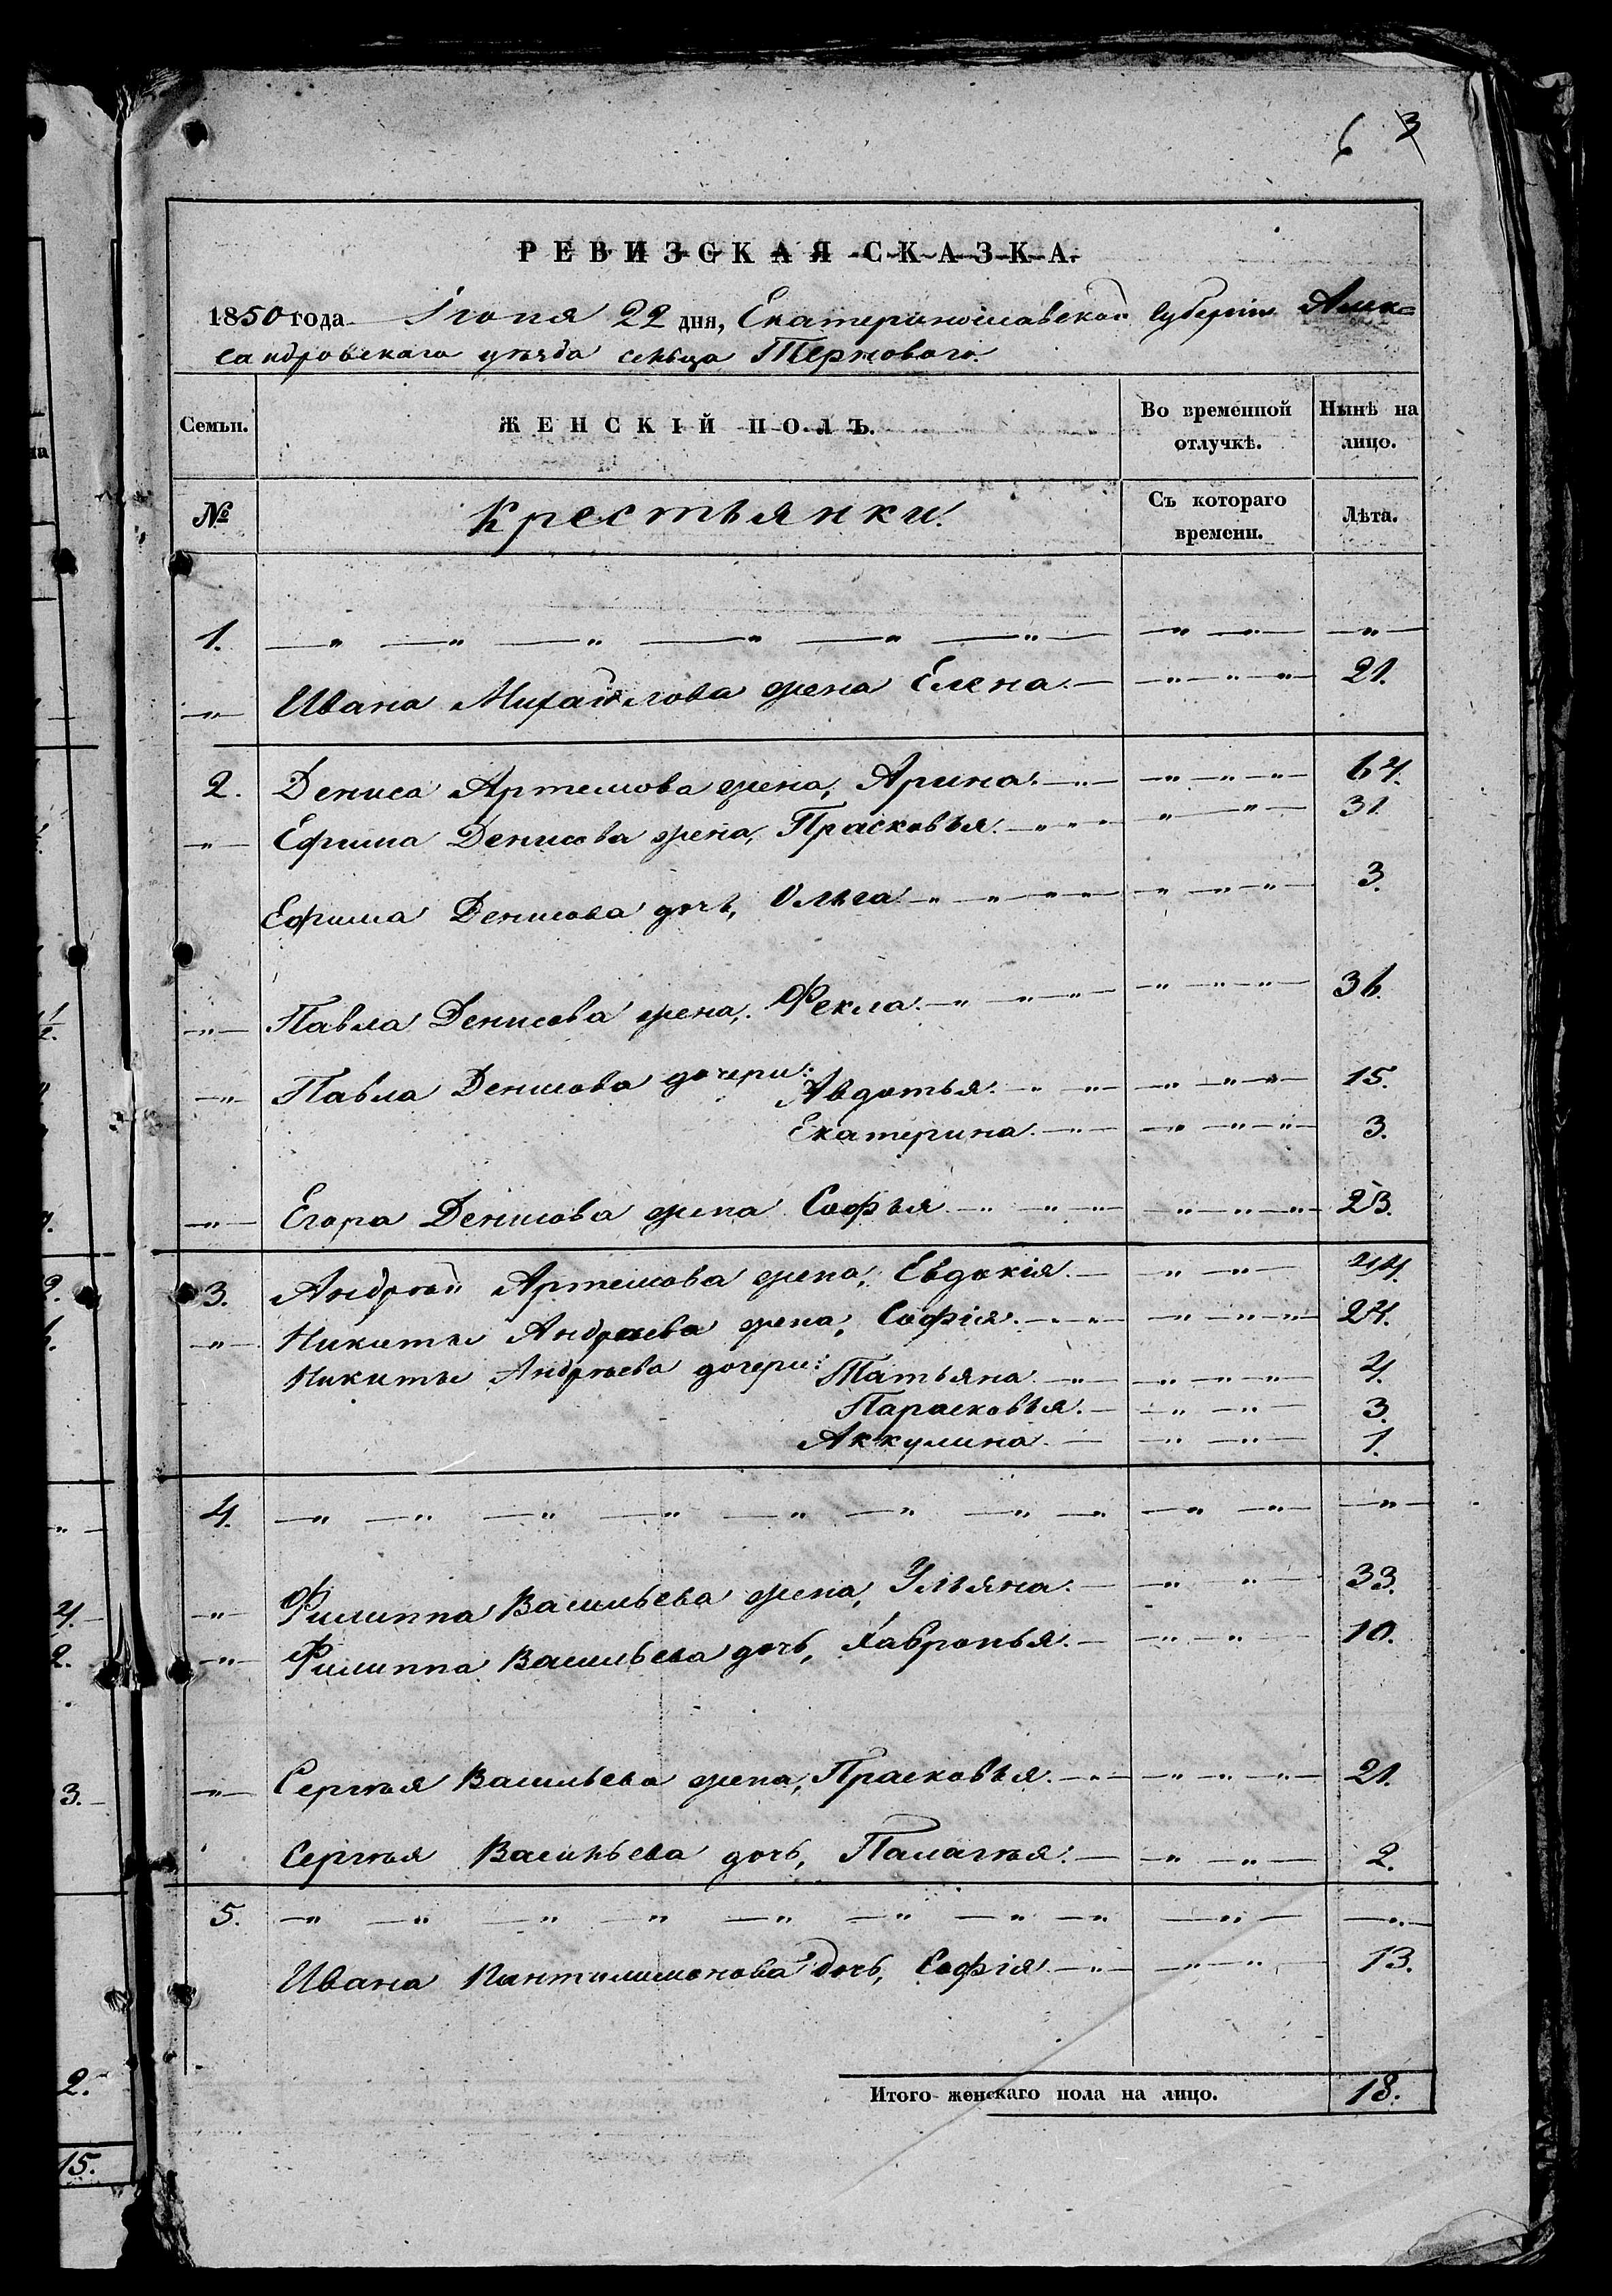 6 3
РЕВИЗСКАЯ СКАЗКА.
1850 года Іюня 22 дня, Екатеринославской губерніи Алек=
сандровскаго уѣзда сельца Терноваго.
Семьи. ЖЕНСКІЙ ПОЛЪ. Во временной отлучкѣ. Нынѣ на лицо.
№ Крестьянки. Съ котораго времени. Лѣта.
1. —„— —„— —„—
„ Ивана Михайлова жена Елена. — 21.
2. Дениса Артемова жена, Арина. — 67.
„ Ефима Денисова жена, Прасковья. — 31.
Ефима Денисова дочь, Ольга — 3.
„ Павла Денисова жена, Фекла. — 36.
„ Павла Денисова дочери: Авдотья. — 15.
Екатерина. — 3.
„ Егора Денисова жена Софья — 23.
3. Андрѣй Артемова жена, Евдокія. — 44.
„ Никиты Андраева жена, Софія. — 24.
Никиты Андрѣева дочери: Татьяна. — 4.
Парасковья. — 3.
Аккулина. — 1.
4. —„— —„— —„—
„ Филиппа Васильева жена, Ульяна. — 33.
„ Филиппа Васильева дочь, Хавронья. — 10.
„ Сергѣя Васильева жена, Прасковья. — 21.
Сергѣя Васильева дочь, Палагѣя. — 2.
5. —„— —„— —„—
Ивана Пантилимонова дочь, Софія — 13.
Итого женскаго пола на лицо. 18.
15.